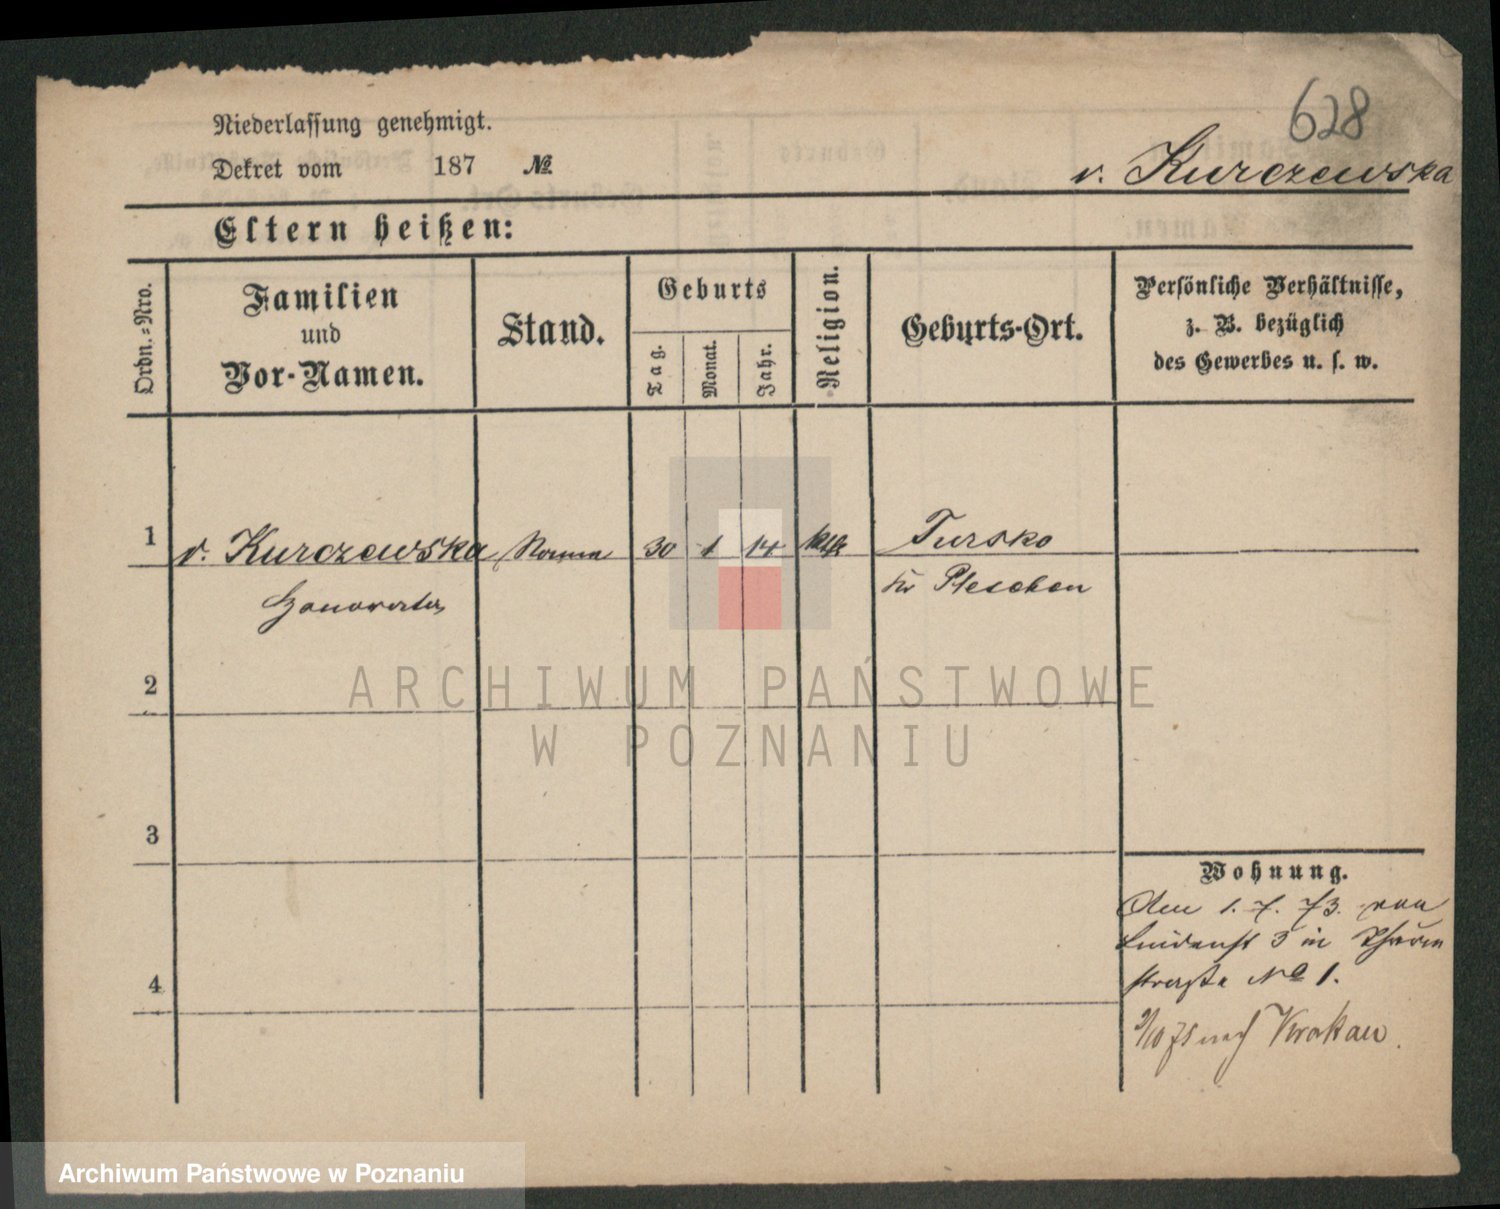 628
Niederlassung genehmigt.
Dekret vom 187 №
v. Kurczewska
Eltern heißen:
Ordn.=Nro.
Familien
und
Vor-Namen.
Stand.
Geburts
Tag.
Monat.
Jahr.
Religion.
Geburts-Ort.
Persönliche Verhältnisse,
z. B. bezüglich
des Gewerbes u. s. w.
1 v. Kurczewska 30 1 14 kath Tursko
Kr Pleschen
2
3
4
Wohnung.
Am 1. 7. 73. von
Lindenst 3 in
straße No 1.
9/10 75 nach Krakau.
ARCHIWUM PAŃSTWOWE
W POZNANIU
Archiwum Państwowe w Poznaniu